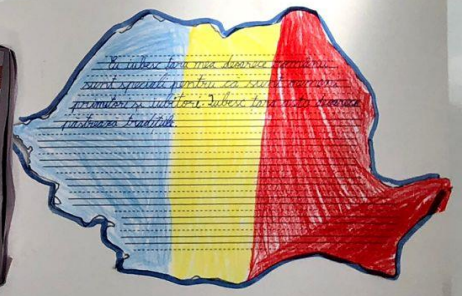 Eu iubesc țara mea deoarece românii
sunt speciali pentru că sunt
primitori și iubitori. Iubesc țara mea deoarece
păstrează tradițiile.